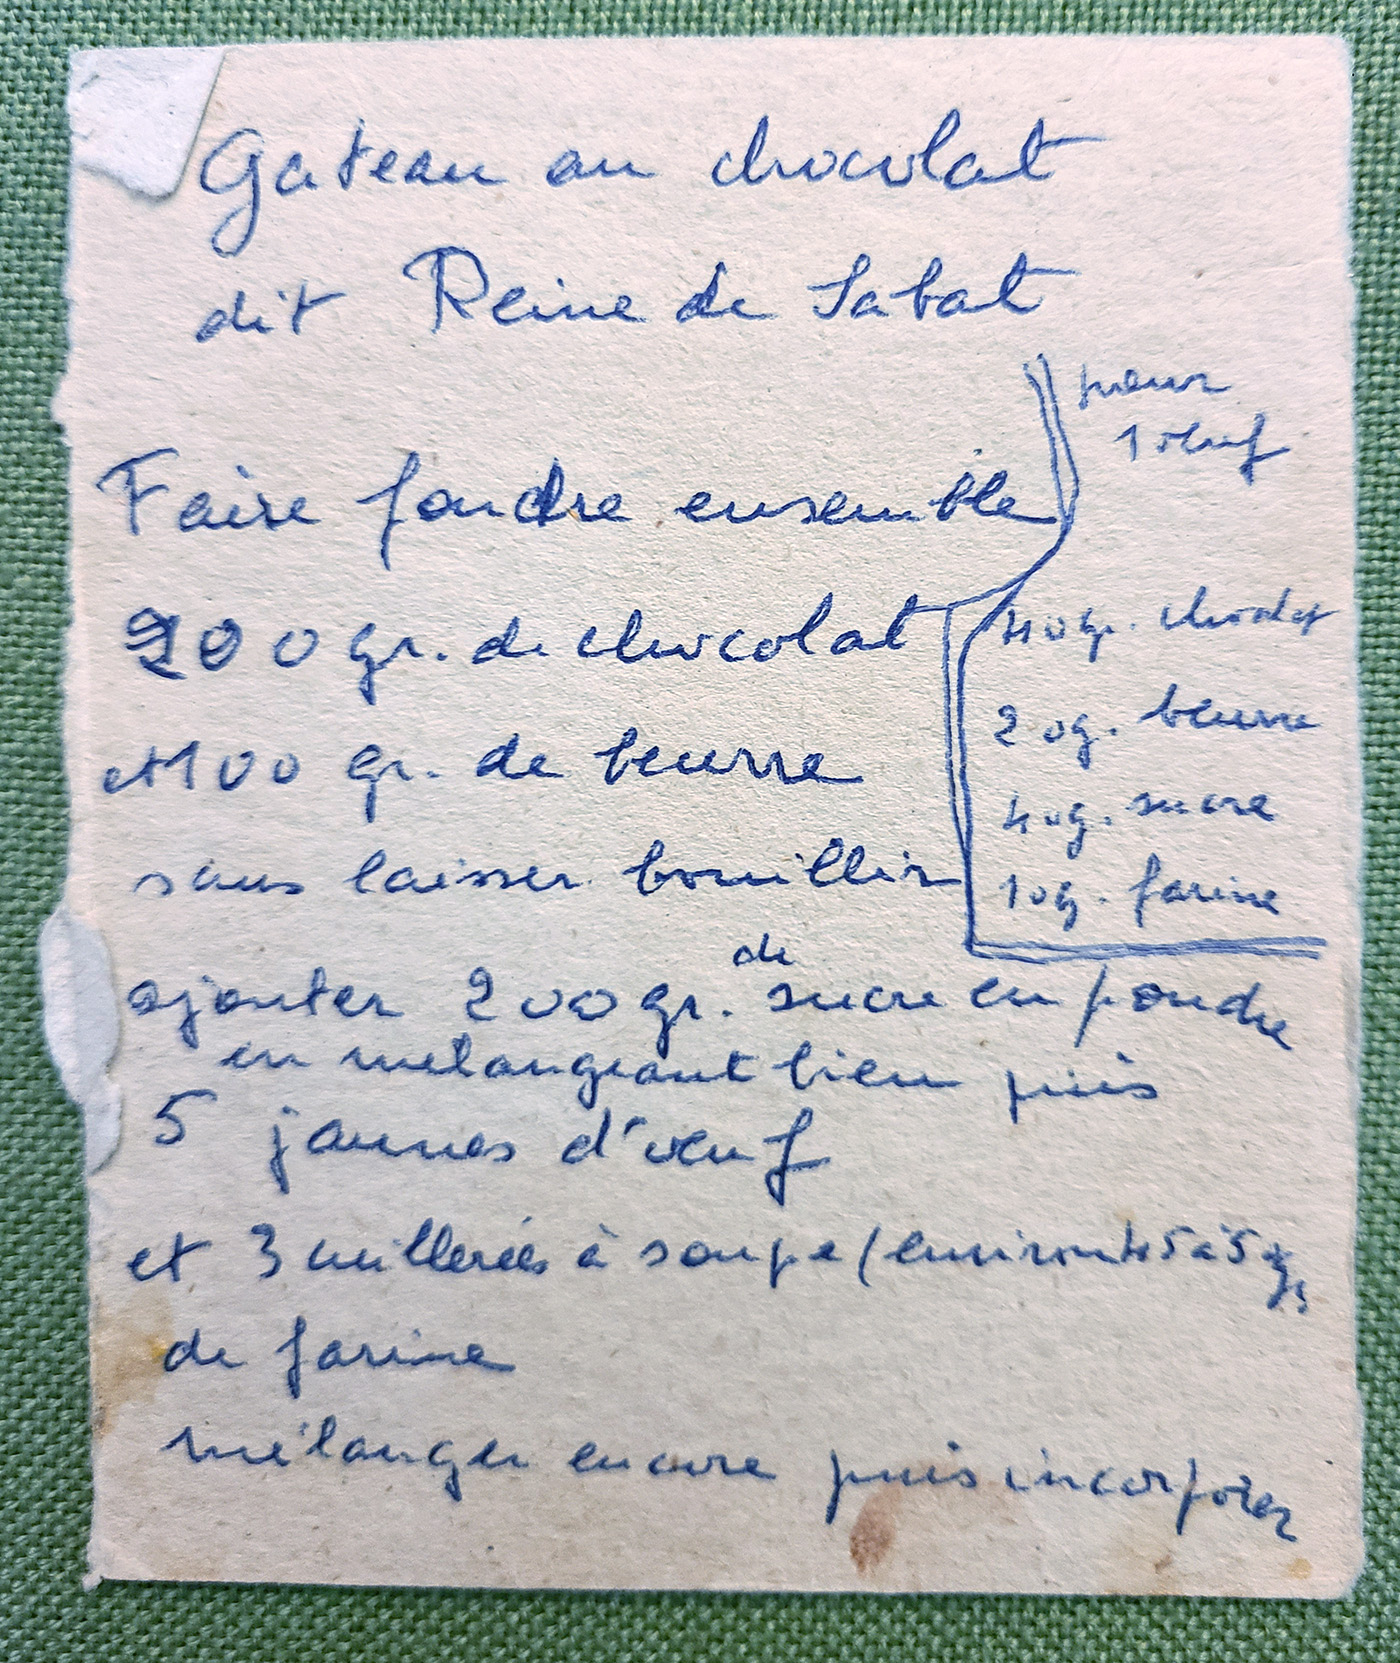 Gateau au chocolat
dit Reine de Sabat
pour
1 oeuf
40 gr. chocolat
20g. beurre
40g. sucre
10g. farine
Faire fondre ensemble
200 gr. de chocolat
et 100 gr. de beurre
sans laisser bouillir
ajouter 200 gr. de sucre en poudre
en mélangeant bien puis
5 jaunes d'oeuf
et 3 cuillerées à soupe (environ 45 à 5
de farine
mélanger encore puis incorporer